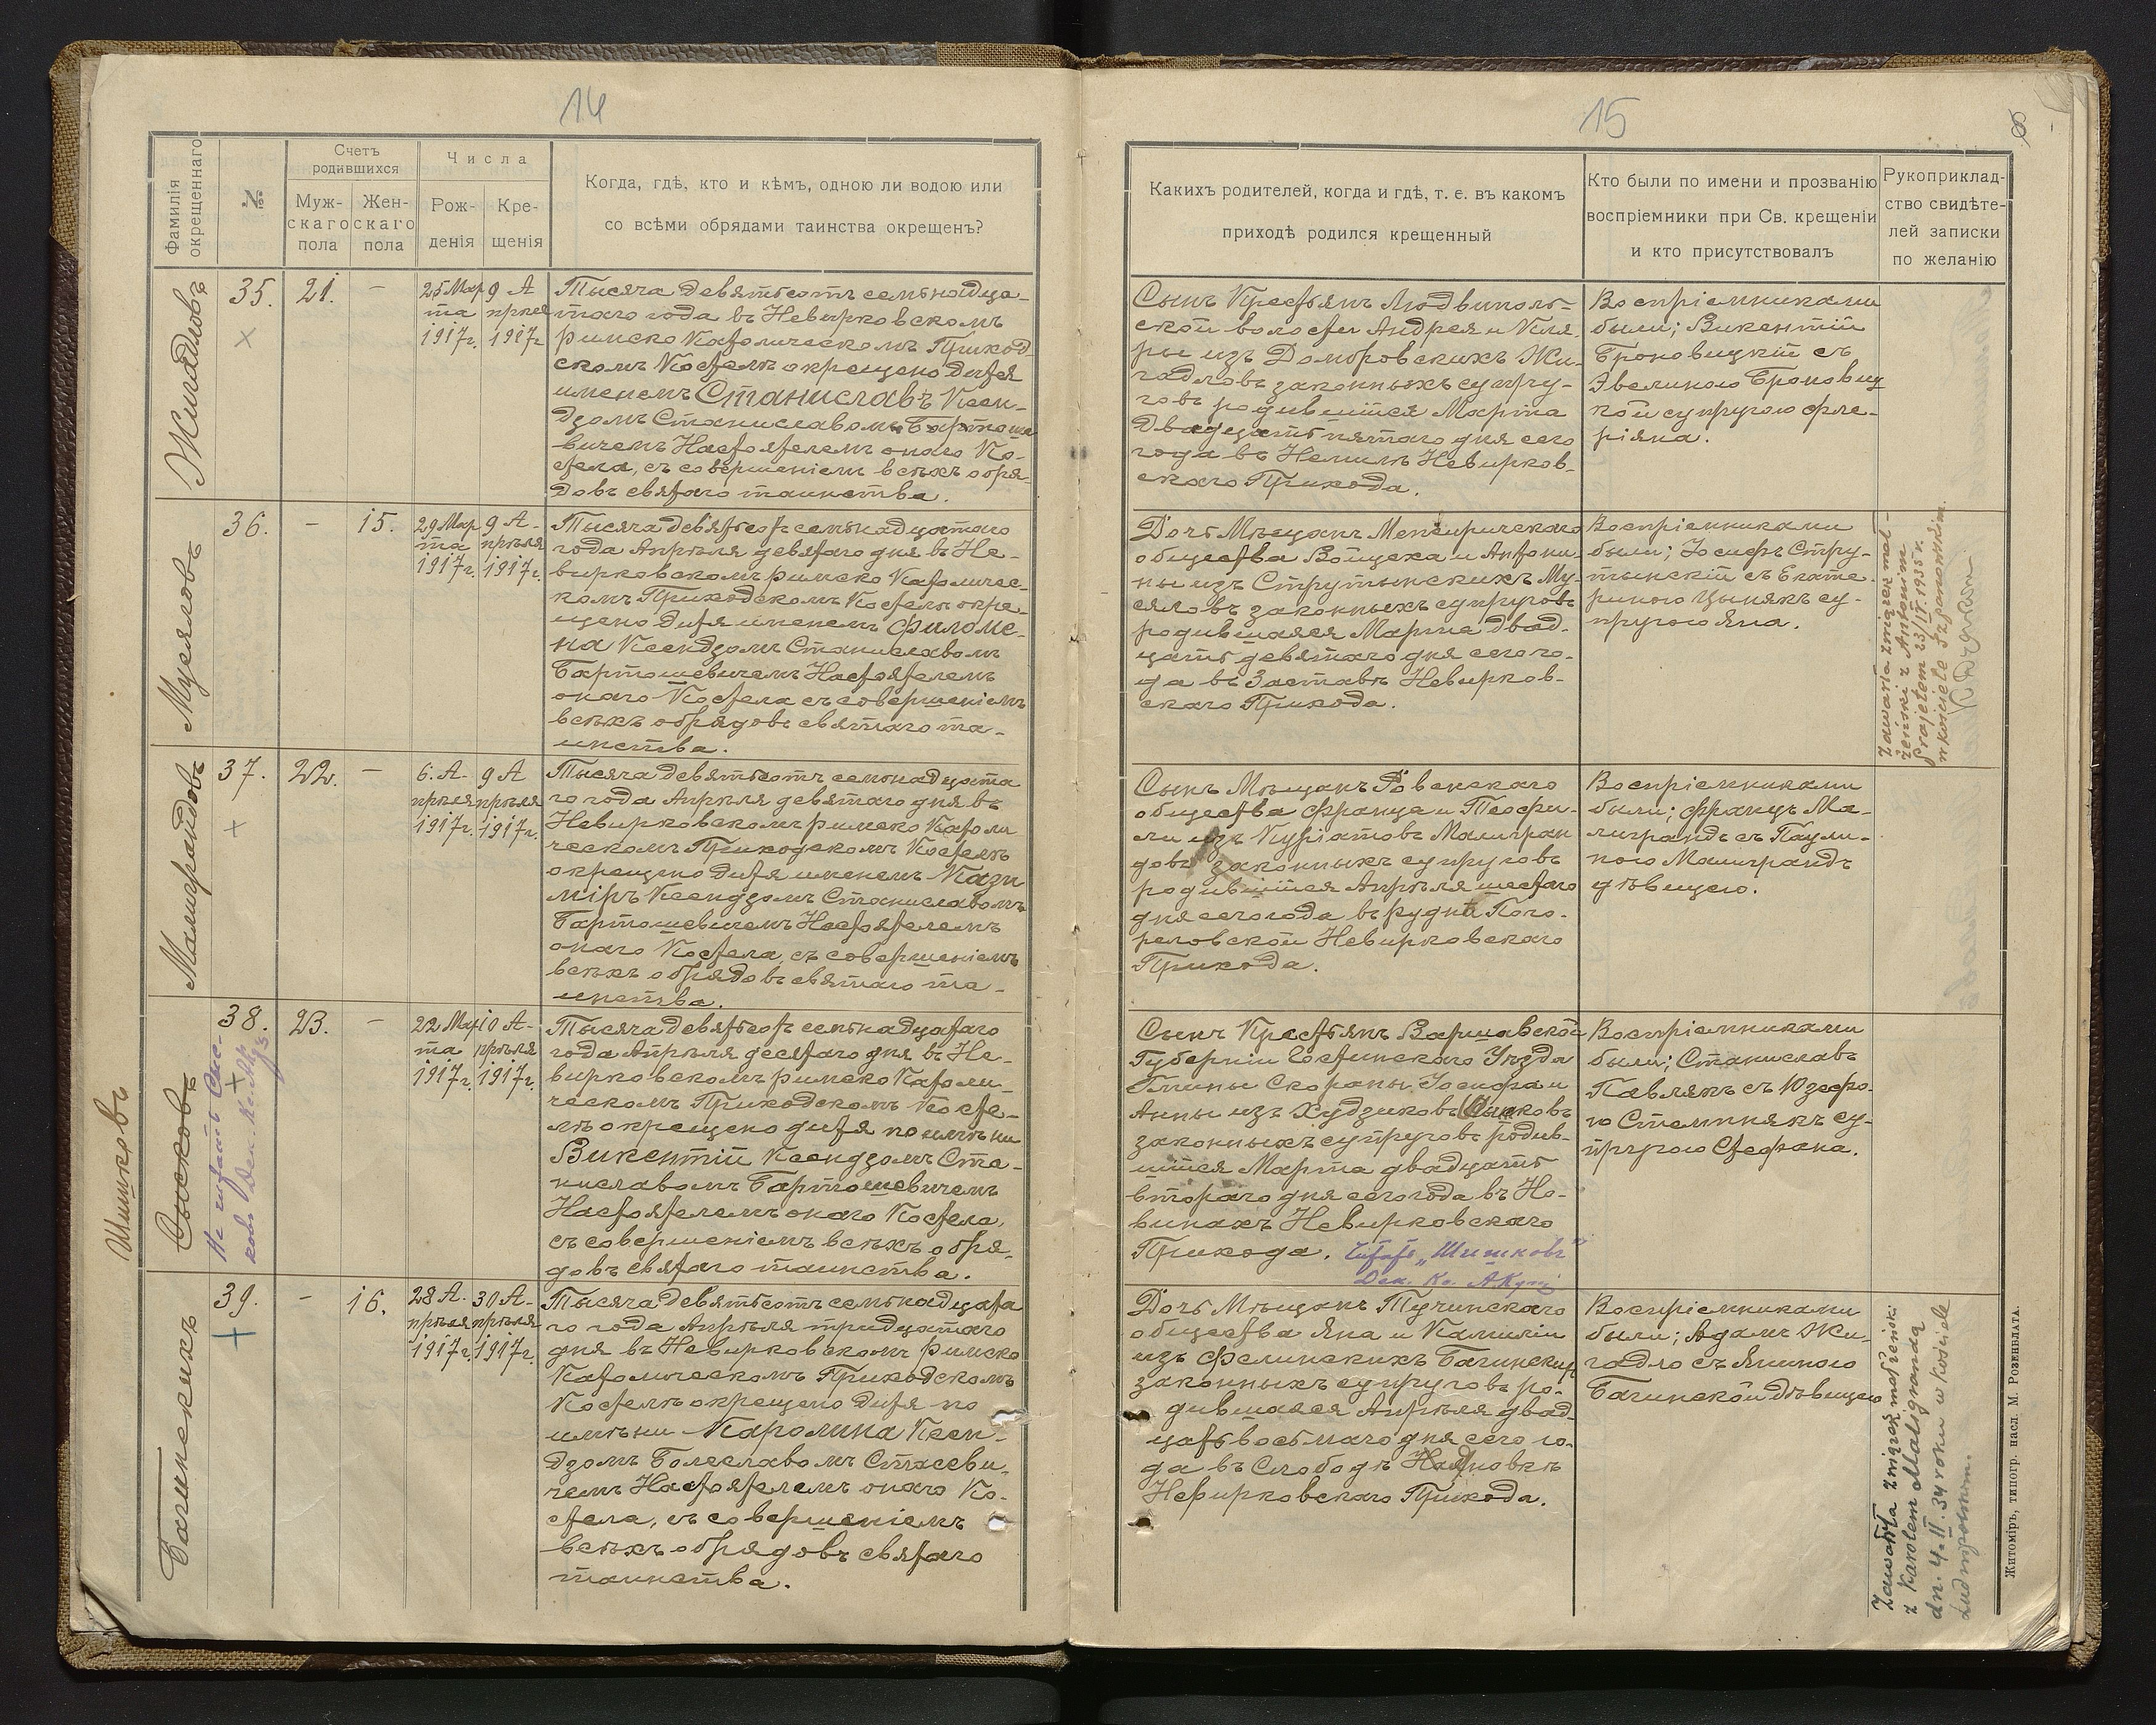 14
Фамилія
окрещеннаго
№
Счетъ
родившихся
Муж-
скаго
пола
Жен-
скаго
пола
Числа
Рож-
денія
Кре-
щенія
Когда, гдѣ, кто и кѣмъ, одною ли водою или
со всѣми обрядами таинства окрещенъ?
35.
21.
–
25 Мар
та
1917г.
9 А
прѣля
1917г
Тысяча девятьсотъ семьнадца-
таго года въ Невирковскомъ
римско Католическомъ Приход
скомъ Костелѣ окрещено дитя
именемъ Станиславъ Ксен-
дзомъ Станиславомъ Бартоше
вичемъ Настоятелемъ онаго Ко-
стела, съ совершеніемъ всѣхъ обря-
довъ святаго таинства.
Мусяловъ
36.
–
15.
29 Мар
та
1917г.
9 А-
прѣля
1917г.
Тысяча девятьсотъ семьнадцатаго
года Апрѣля девятаго дня въ Не-
вирковскомъ римско Католичес-
комъ Приходскомъ Костелѣ окре-
щено дитя именемъ Филоме-
на Ксендзомъ Станиславомъ
Бартошевичемъ Настоятелемъ
онаго Костела съ совершеніемъ
всѣхъ обрядовъ святаго та-
инства.
Малиграндовъ
37.
22.
–
6. А-
прѣля
1917г.
9 А
прѣля
1917г.
Тысяча девятьсотъ семьнадцата
го года Апрѣля девятаго дня въ
Невирковскомъ римско Католи
ческомъ Приходскомъ Костелѣ
окрещено дитя именемъ Кази
міръ Ксендзомъ Станиславомъ
Бартошевичемъ Настоятелемъ
онаго Костела, съ совершеніемъ
всѣхъ обрядовъ святаго та-
инства.
Шишковъ
Сысковъ
38.
23.
–
22 Мар
та
1917г.
10 А-
прѣля
1917г.
Тысяча девятьсотъ семьнадцатаго
года Апрѣля десятаго дня въ Не-
вирковскомъ римско Католи-
ческомъ Приходскомъ Косте-
лѣ окрещено дитя по имени
Викентій Ксендзомъ Ста-
ниславомъ Бартошевичемъ
Настоятелемъ онаго Костела,
съ совершеніемъ всѣхъ обря-
довъ святаго таинства.
Багинскихъ
39.
–
16.
28 А-
прѣля
1917г.
30 А-
прѣля
1917г.
Тысяча девятьсотъ семьнадцата
го года Апрѣля тридцатаго
дня въ Невирковскомъ римско
Католическомъ Приходскомъ
Костелѣ окрещено дитя по
имени Каролина Ксен-
дзомъ Болеславомъ Стасеви-
чемъ Настоятелемъ онаго Ко-
стела, съ совершеніемъ
всѣхъ обрядовъ святаго
таинства.
15
8
Какихъ родителей, когда и гдѣ, т. е. въ какомъ
приходѣ родился крещенный
Кто были по имени и прозванію
воспріемники при Св. крещеніи
и кто присутствовалъ
Рукоприклад-
ство свидѣте-
лей записки
по желанію
Сынъ Крестьянъ Людвиполь-
ской волости Андрея и Кля
ры изъ Домбровскихъ Жи-
гадловъ законныхъ супру-
говъ родившійся Марта
двадцать пятаго дня сего
года въ Немилѣ Невирков-
скаго Прихода.
Воспріемниками
были; Викентій
Броновицкій съ
Эвелиною Броновиц
кой супругою Фло-
ріяна.
Дочь Мѣщанъ Межиричскаго
общества Войцеха и Антони-
ны изъ Струтынскихъ Му-
сяловъ законныхъ супруговъ
родившаяся Марта двад-
цать девятаго дня сего го-
да въ Заставѣ Невирков-
скаго Прихода.
Воспріемниками
были; Іосифъ Стру-
тынскій съ Екате-
риною Цынякъ су-
пругою Яна.
Zawarła związek mał-
żeński z Antonim
Prajetem 23/IV.1935 r.
w kościele
Сынъ Мѣщанъ Ровенскаго
общества Франца и Теофи-
ли изъ Купріатовъ Малигран
довъ законныхъ супруговъ
родившійся Апрѣля шестаго
дня сего года въ руднѣ Пого-
реловской Невирковскаго
Прихода.
Воспріемниками
были; Францъ Ма-
лиграндъ съ Паули-
ною Малиграндъ
дѣвицею.
Сынъ Крестьянъ Варшавской
Губерніи Гостынскаго Уѣзда
Гмины Скораны, Іосифа и
Анны изъ Худзиковъ
законныхъ супруговъ родив-
шійся Марта двадцать
втораго дня сего года въ Но-
винахъ Невирковскаго
Прихода. Читать „Шишковъ"
Воспріемниками
были; Станиславъ
Павлякъ съ Юзефо-
ю Стемпнякъ су-
пругою Стефана.
Дочь Мѣщанъ Тучинскаго
общества Яна и Камиліи
изъ Фелинскихъ Багинскихъ
законныхъ супруговъ ро-
дившаяся Апрѣля двад-
цать восьмаго дня сего го-
да въ Слободѣ
Невирковскаго Прихода.
Воспріемниками
были; Адамъ Жи-
гадло съ Яниною
Багинской дѣвицею
Zawarła związek małżeński
z Karolem Maligrandą
dn. 4.II.34 roku w kościele
Ludwipolskim.
Житоміръ, типогр. насл. М. Розенблата.